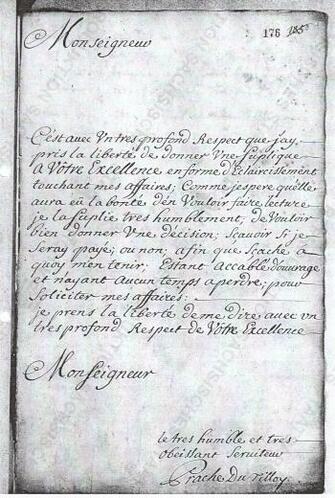 176 185
Monseigneur
C'est avec Un tres profond Respect que j'ay,
pris la liberté de donner Vne suplique
A Vôtre Excellence en forme d'Eclaircissement
touchant mes affaires; Comme jespere qu'elle
aura eû la bonté d'en Vouloir faire lecture
je la suplie tres humblement, de Vouloir
bien donner Vne décision; Scavoir Si je
Seray payé; ou non; afin que Scache à
quoy m'en tenir; Estant Accablé d'ouvrage
et n'ayant Aucun temps a perdre; pour
Soliciter mes affaires:
je prens la liberté de me dire avec un
tres profond Respect de Vôtre Excellence
Monseigneur
le tres humble et tres
obeissant Serviteur
Prache Du Tilloy